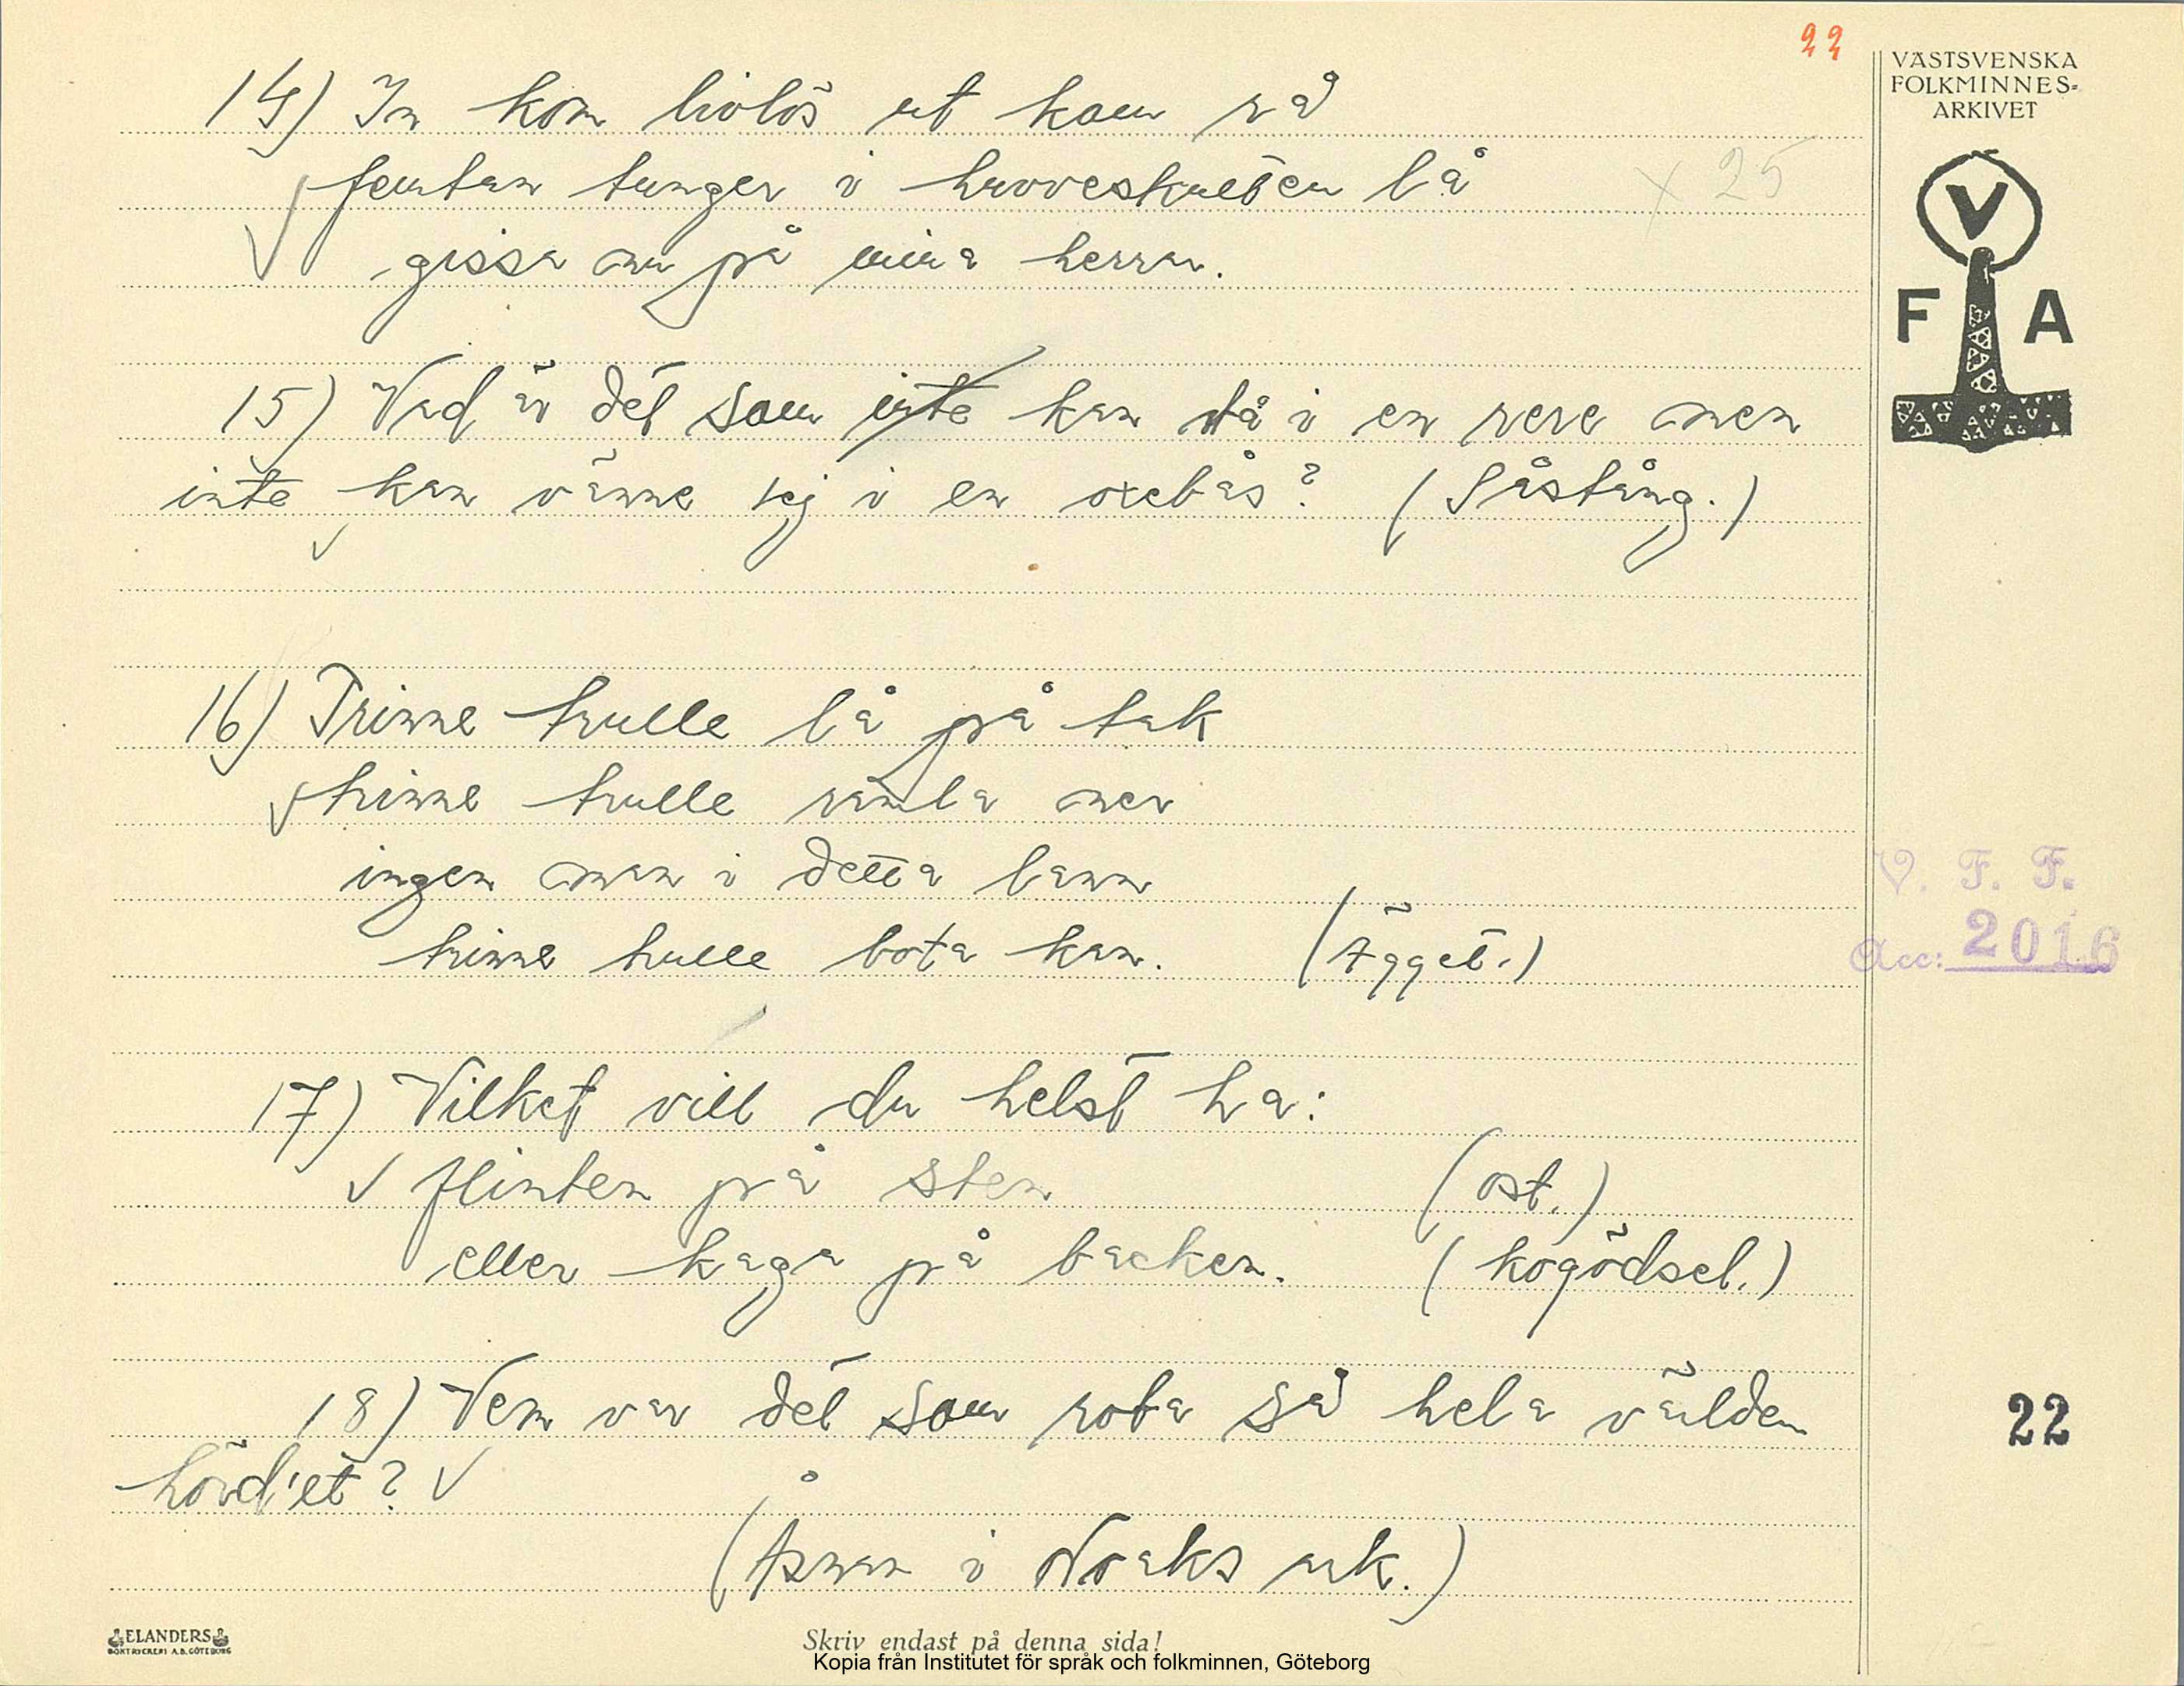 22
VÄSTSVENSKA
FOLKMINNES-
ARKIVET
V
F A
14) In kom livlös ut kom rå
femtan tunger i huvveskulten lå
x 25
gissa nu på mina herrar.
15) Vad är det som inte kan stå i en reve men
inte kan vänne sej i en oxebås? (Såstång.)
16) Trinne trulle lå på tak
trinne trulle ramla ner
ingen man i detta lann
trinne trulle bota kan. (Ägget.)
V. F. F.
Acc: 2016
17) Vilket vill du helst ha:
flinten på sten (ost.)
eller kaga på backen. (kogödsel.)
18) Vem var det som roba så hela välden
hörd'et? 
22
(Åsnan i Noaks ark.)
ELANDERS
BOKTRYCKERI A.B. GÖTEBORG
Skriv endast på denna sida!
Kopia från Institutet för språk och folkminnen, Göteborg